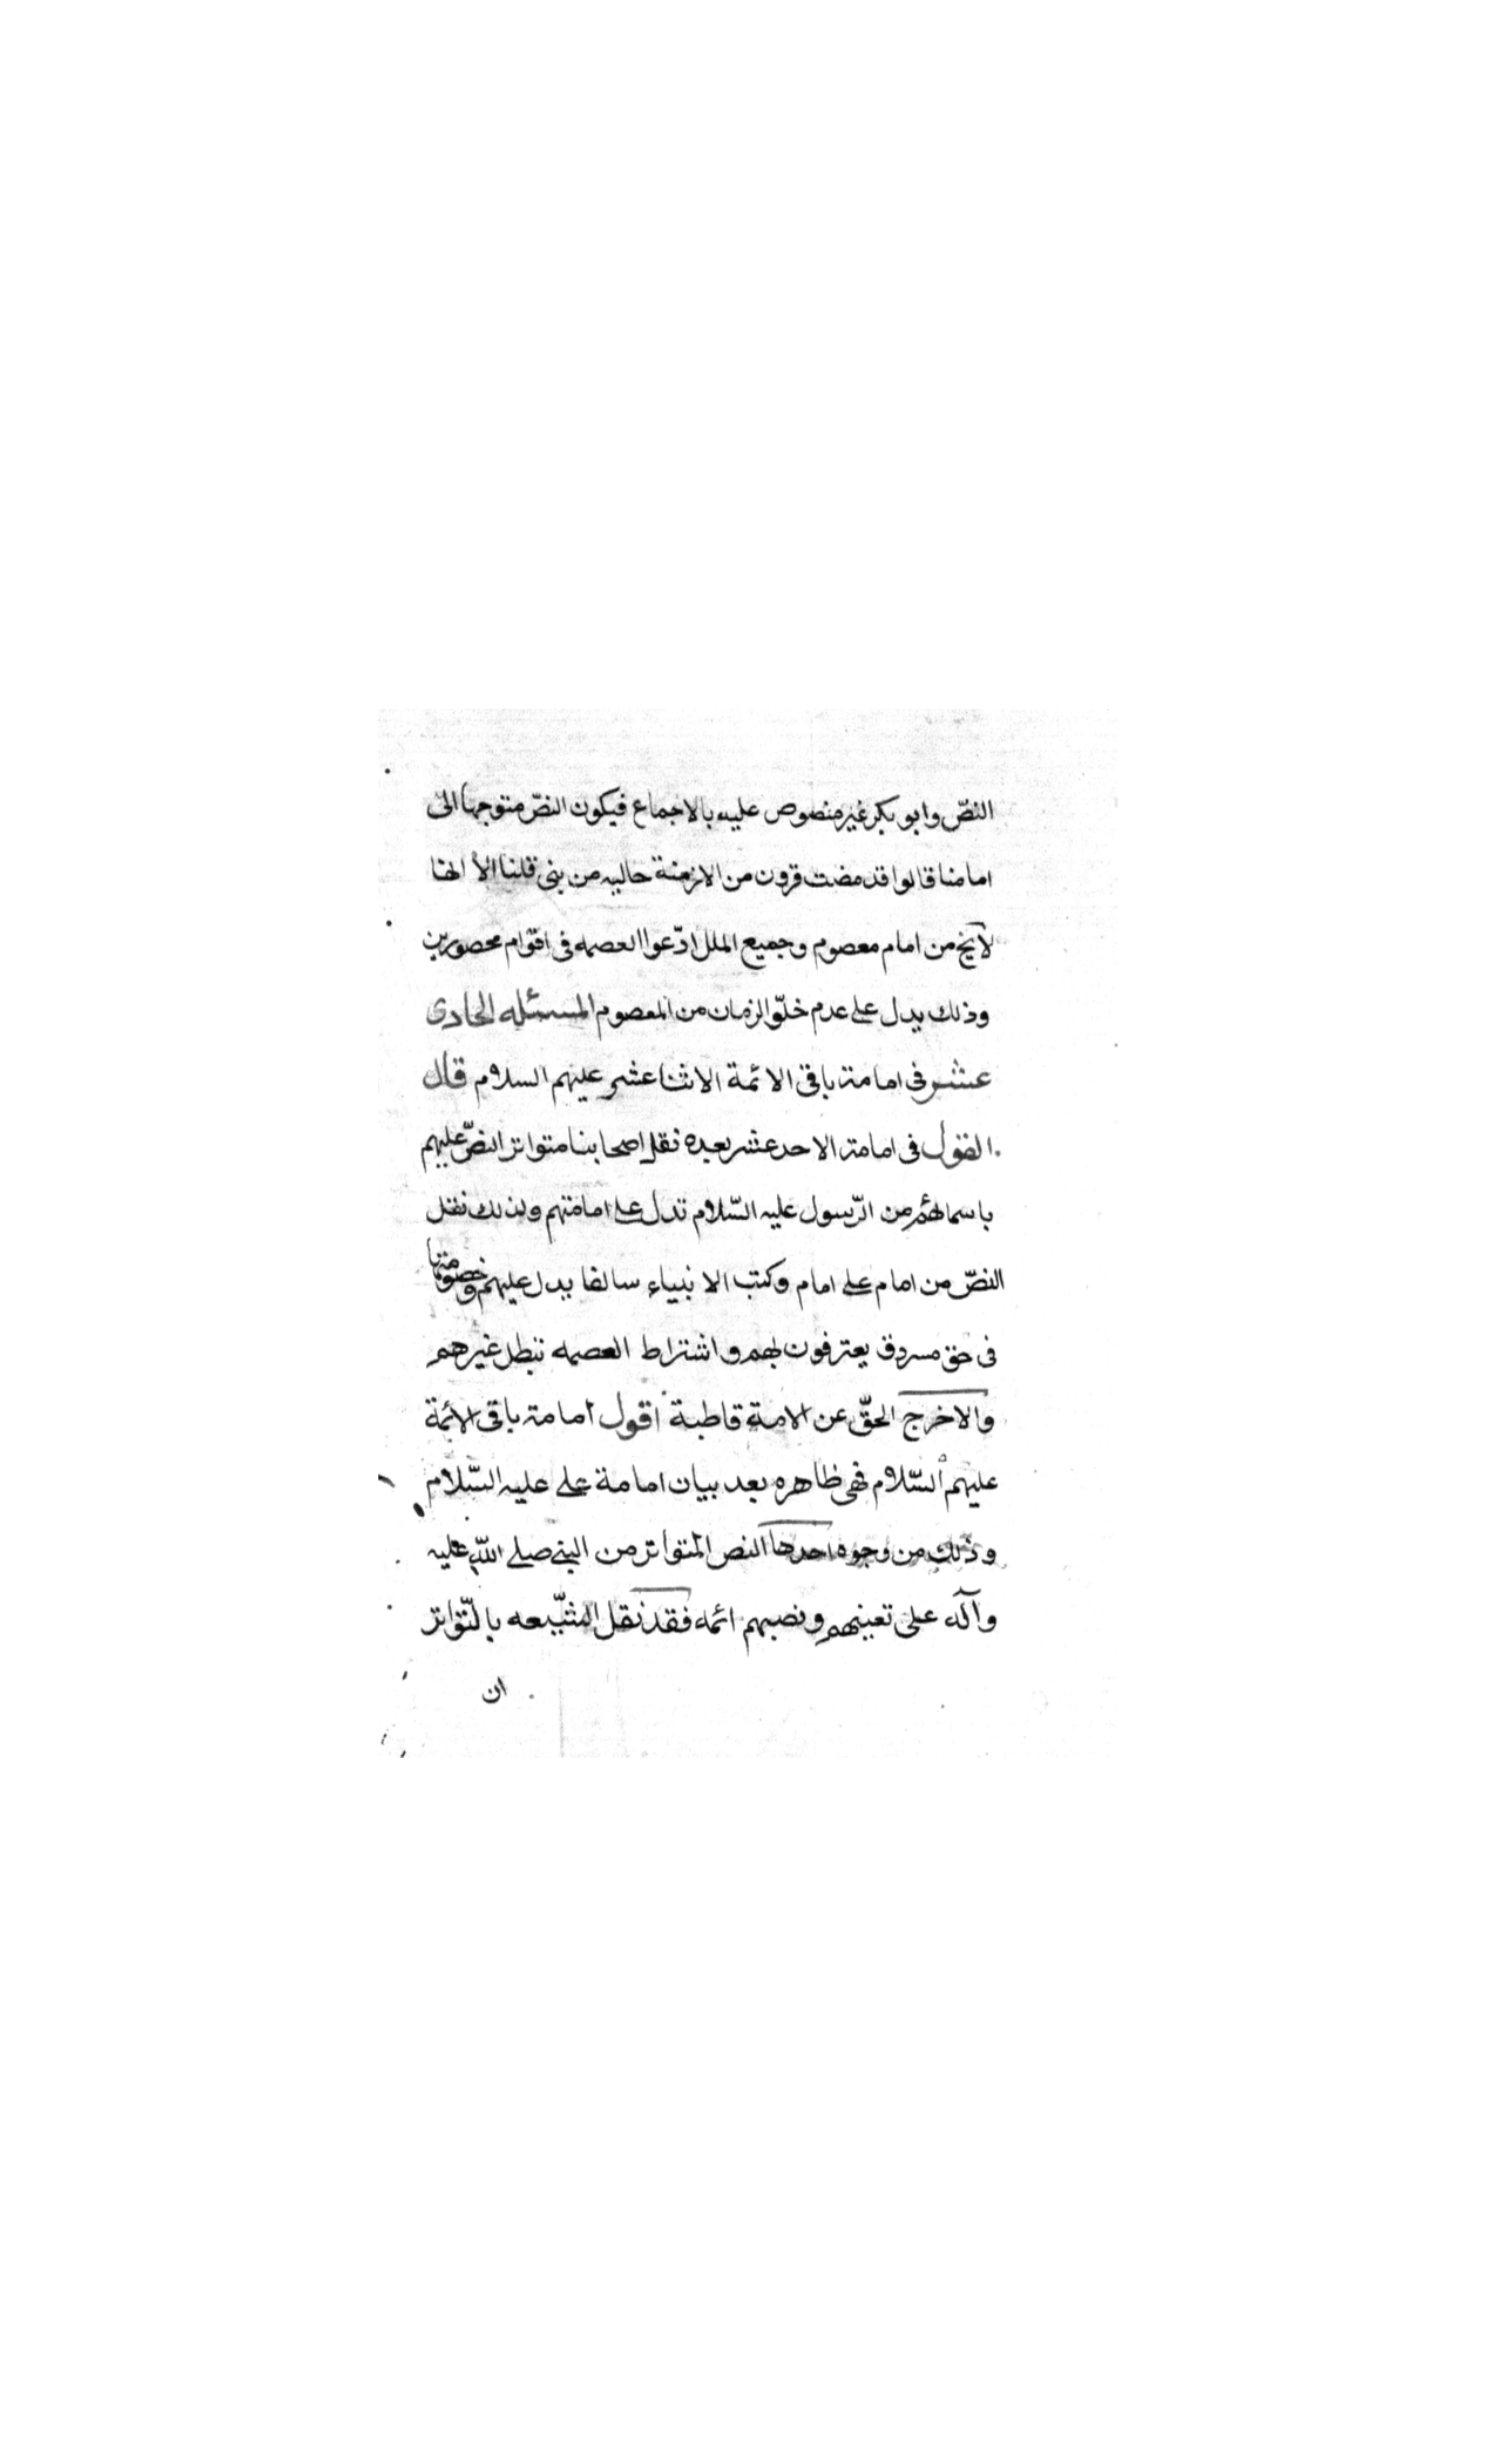 النصّ وابو بكر غير منصوص عليه بالاجماع فيكون النصّ متوجها الى
امامنا قالوا قد مضت قرون من الازمنة خاليه من بنى قلنا الا انها
لايخ من امام معصوم وجميع الملل ادّعوا العصمه فى اقوام محصورين
وذلك يدل على عدم خلّو الزمان من المعصوم المسئله الحادى
عشر فى امامة باقى الائمة الاثنا عشر عليهم السلام قال
القول فى امامة الاحد عشر بعده نقل اصحابنا متواتر النصّ عليهم
باسمائهم من الرّسول عليه السّلام تدل على امامتهم ولذلك نقل
النصّ من امام على امام وكتب الانبياء سالفا يدل عليهم وخصوصا
فى حق مسروق يعترفون بهم واشتراط العصمه تبطل غيرهم
والا خرج الحقّ عن الامة قاطبة اقول امامة باقى الائمة
عليهم السّلام فهى ظاهره بعد بيان امامة على عليه السّلام
وذلك من وجوه احدها النص المتواتر من النبى صلى الله عليه
وآله على تعينهم ونصبهم ائمه فقد نقل الشّيعه بالتّواتر
ان